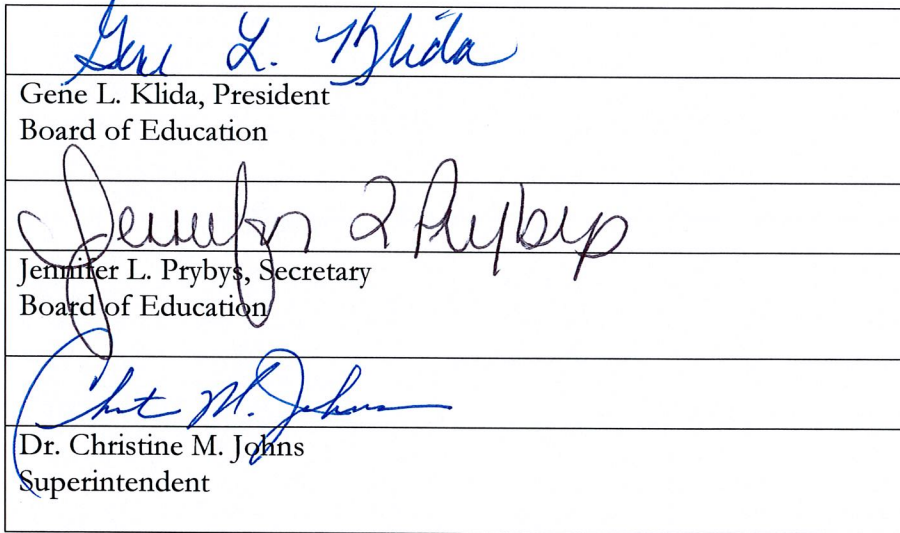 Gene L. Klida
Gene L. Klida, President
Board of Education
Jennifer L Prybys
Jennifer L. Prybys, Secretary
Board of Education
Christine M. Johns
Dr. Christine M. Johns
Superintendent